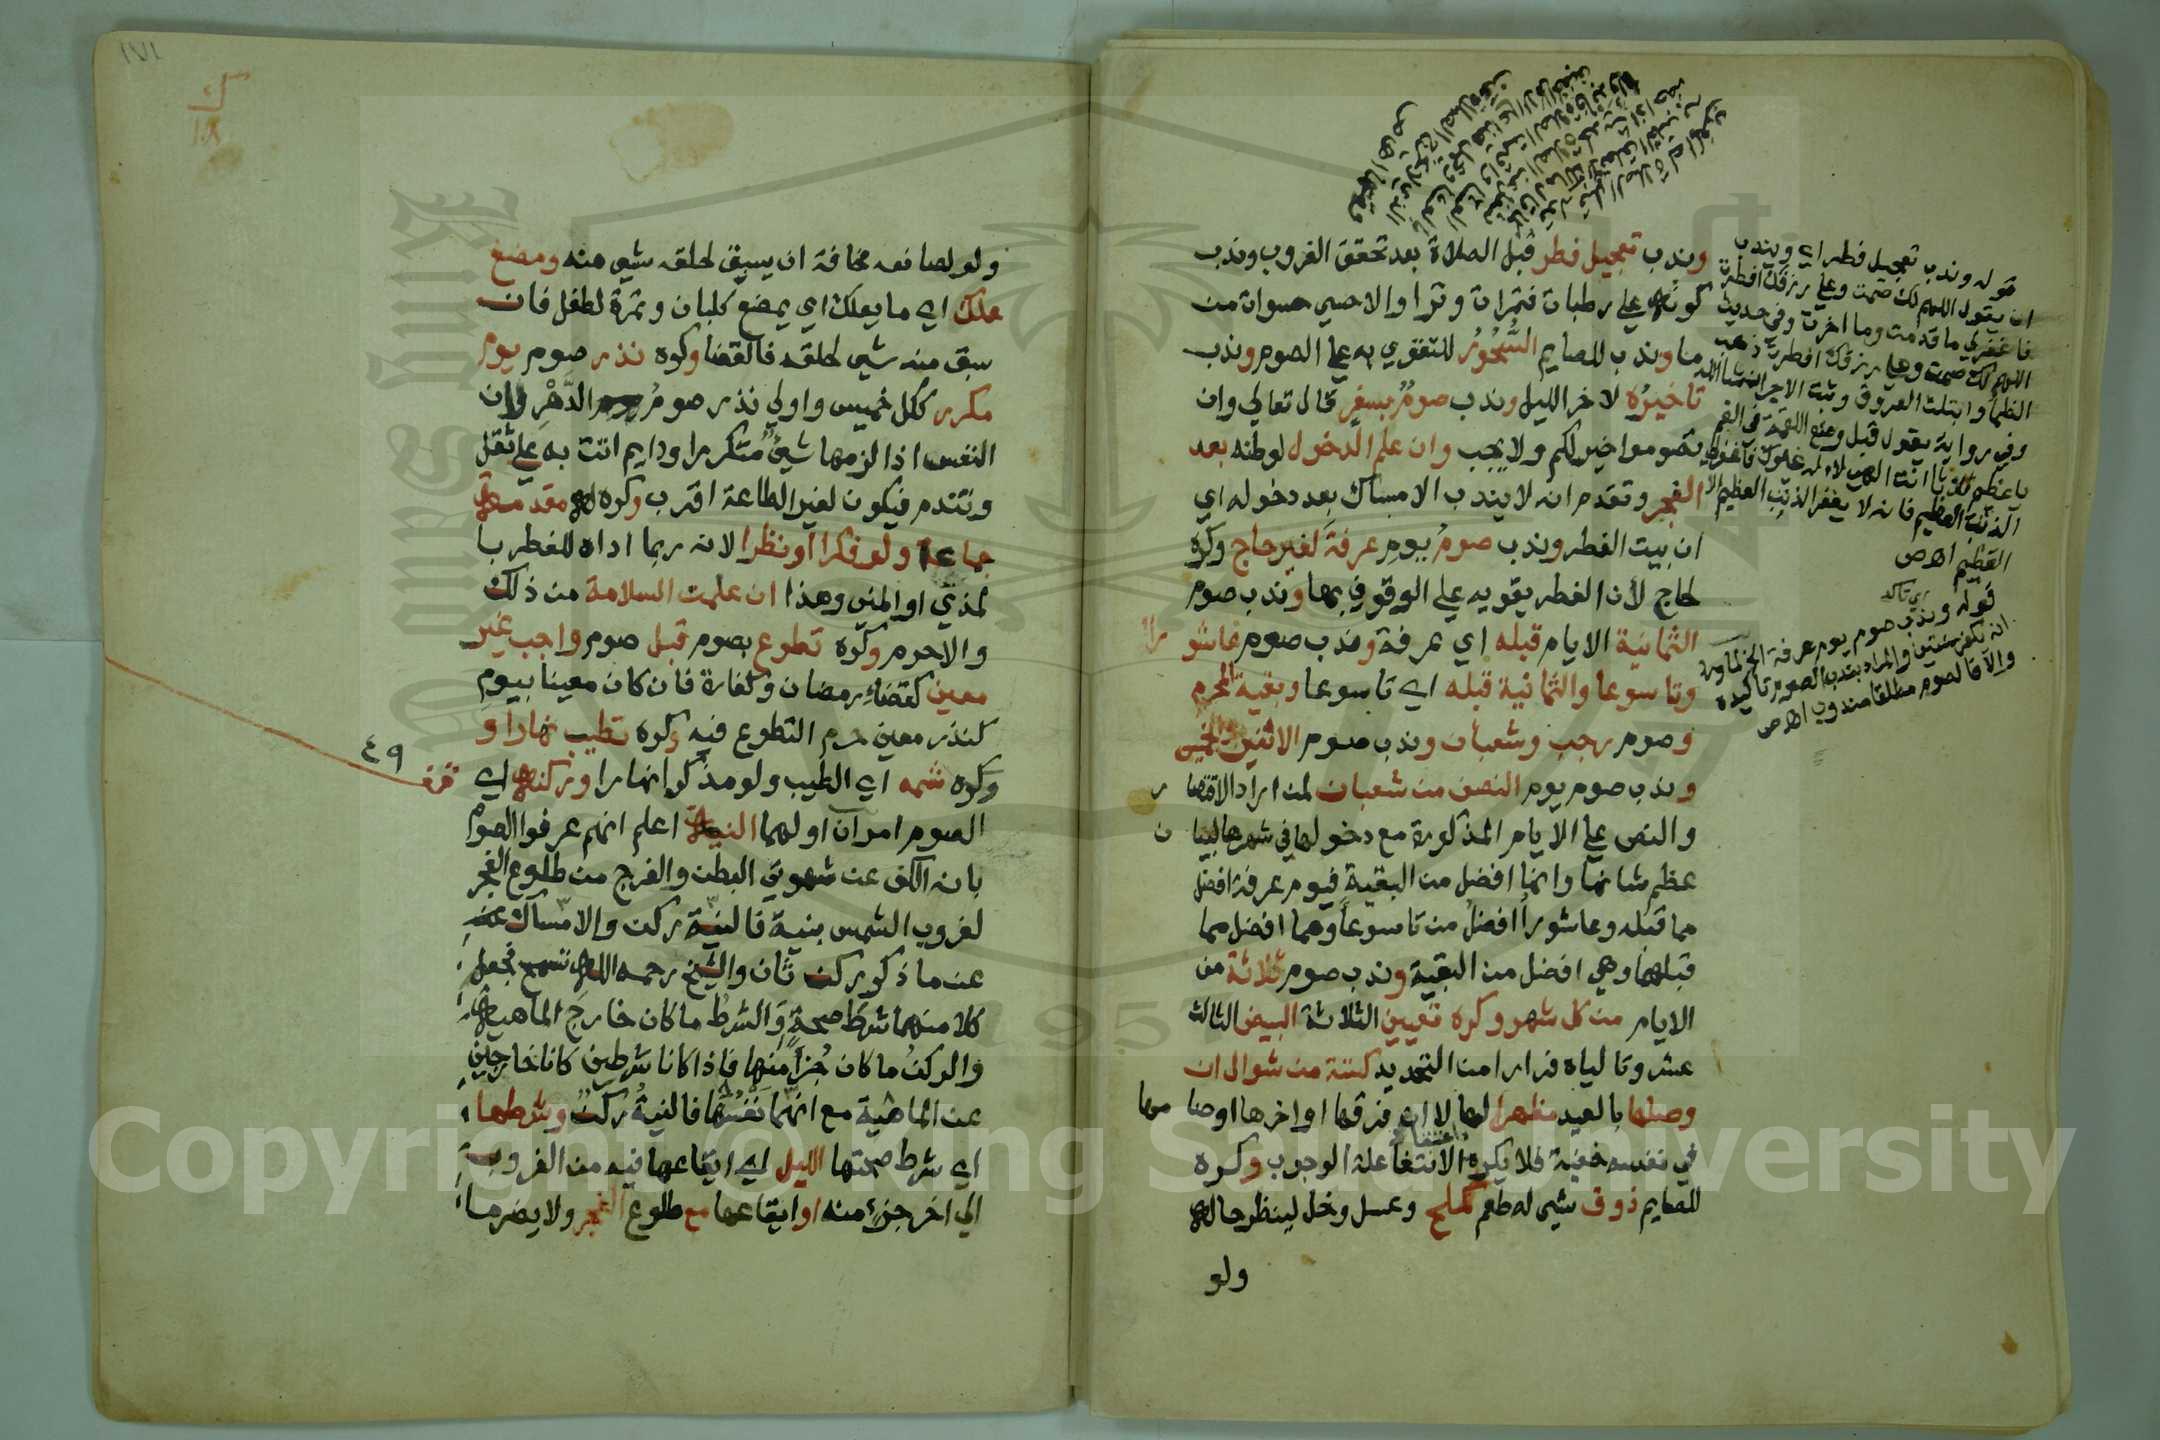 وندب تعجيل فطر قبل الصلاة بعد تحقق الغروب وندب
كونه على رطبات فتمرات وترا والا حسى حسوات من
ما وندب للصايم السُّحُورُ للتقوي به على الصوم وندب
تاخيرُه لاخر الليل وندب صومٌ بسفرٍ قال تعالي وان
تصوموا خير لكم ولا يجب وان علم الدخول لوطنه بعد
الفجر وتقدم انه لا يندب الامساك بعد دخوله اي
ان بيت الفطر وندب صومُ يومِ عرفةَ لغير حاج وكره
لحاج لأن الفطر يقويه علي الوقوف بها وندب صوم
الثمانية الايام قبله اي عرفة وندب صوم عاشورا
وتاسوعا والثمانية قبله اي تاسوعا وبقية المحرم
وصوم رجب وشعبان وندب صوم الاثنين والخميس
وندب صوم يوم النصف من شعبان لمن اراد الاقتصار
والنص علي الايام المذكورة مع دخولها في شهرها لبيان
عظم شانها وانها افضل من البقية فيوم عرفة افضل
مما قبله وعاشوراُ افضل من تاسوعا وهما افضل مما
قبلهما وهي افضل من البقية وندب صوم ثلاثة من
الايام من كل شهر وكره تعيين الثلاثة البيض الثالث
عشر وتالياه فرارا من التحديد كستة من شوال ان
وصلها بالعيد مظهرا لها لا ان فرقها او اخرها او صامها
في نفسه خفية فلا يكره لانتفا علة الوجوب وكره
للصايم ذوق شي له طعم كملح وعسل وخل لينظر حاله
ولو
قوله وندب تعجيل فطر اي ويندب
ان يقول اللهم لك صمت وعلى رزقك افطرت
فاغفرلي ما قدمت وما اخرت وفي حديث
اللهم لك صمت وعلي رزقك افطرت ذهب
الظمأ وابتلت العروق وثبت الاجر ان شا الله
وفي رواية يقول قبل وضع اللقمة في الفم
يا عظيم يا عظيم انت الهي لا اله غيرك فاغفرلي
الذنب العظيم فانه لا يغفر الذنب العظيم الا
العظيم اه ص
قوله وندب صوم يوم عرفة الخ لما ورد
انه يكفر سنتين والمراد بندب الصوم تاكيده
والا فالصوم مطلقا مندوب اه ص
ولو لصانعه مخافة ان يسبق لحلقه شي منه ومضغ
علك اي ما يعلك اي يمضغ كلبان وتمرة لطفل فان
سبق منه شي لحلقه فالقضا وكره نذر صوم يوم
مكرر ككل خميس واولي نذر صومُ الدَّهْرِ لان
النفس اذا لزمها شيٌ متكررا ودايم اتت به علي ثقل
وتندم فيكون لغير الطاعة اقرب وكره له مقدمة
جماع ولو فكرا او نظرا لانه ربما اداه للفطر با
لمذي او المني وهذا ان علمت السلامة من ذلك
والا حرم وكره تطوع بصوم قبل صوم واجب غير
معين كقضاءِ رمضان وكفارة فان كان معينا بيوم
كنذر معين حرم التطوع فيه وكره تطيب نهارا و
وكره شمه اي الطيب ولو مذكرا نهارا وركنه اي
الصوم امران اولهما النية اعلم انهم عرفوا الصوم
بانه الكف عن شهوتي البطن والفرج من طلوع الفجر
لغروب الشمس بنية فالنية ركن والامساك
عن ما ذكر ركن ثان والشيخ رحمه الله تسمح فجعل
كلا منهما شرط صحة والشرطُ ما كان خارجَ الماهية
والركنُ ما كان جُزأً منها فاذا كانا شرطين كانا خارجين
عن الماهية مع انهما نَفْسُها فالنيةُ ركنٌ وشرطها
اي شرط صحتها الليل اي ايقاعها فيه من الغروب
الي اخر جزءٍ منه او ايقاعها مع طلوع الفجر ولا يضر ما
٤٩
١٧١
Copyright © King Saud University
1957